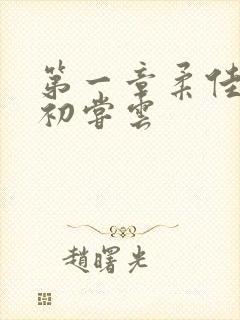 第一章柔佳
初尝雲
趙曙光